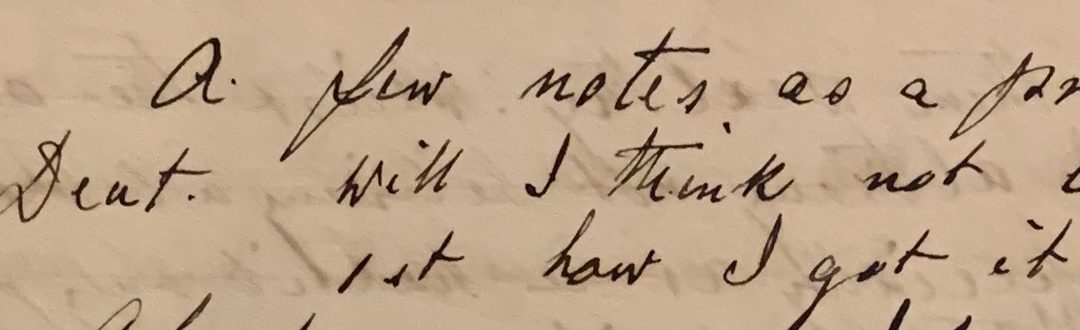 A. few notes as a
Deut. will I think not
1st how I got it